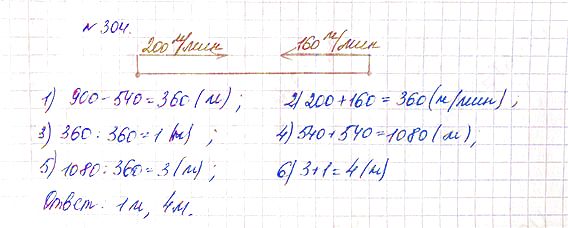 № 304.
200 м/мин 160 м/мин
1) 900 - 540 = 360 (м) ; 2) 200 + 160 = 360 (м/мин) ;
3) 360 : 360 = 1 (м) ; 4) 540 + 540 = 1080 (м) ;
5) 1080 : 360 = 3 (м) ; 6) 3 + 1 = 4 (м)
Ответ: 1 м, 4 м.